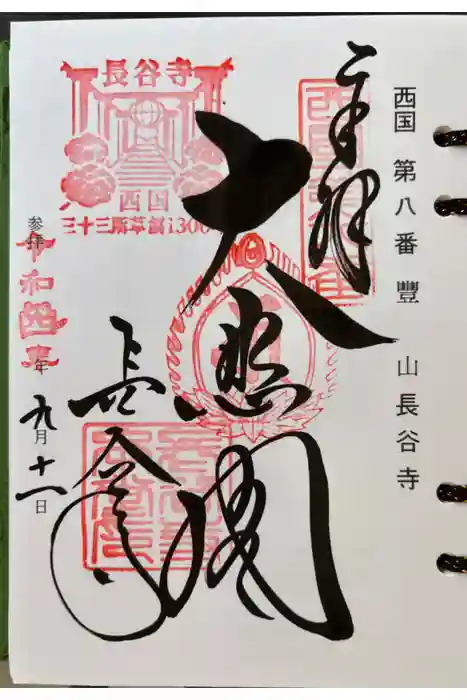 西国 第八番 豊 山長谷寺
奉拝
大悲閣
長谷寺
長谷寺
西国
三十三所草創1300
参拝 令和四 年 九月十一日